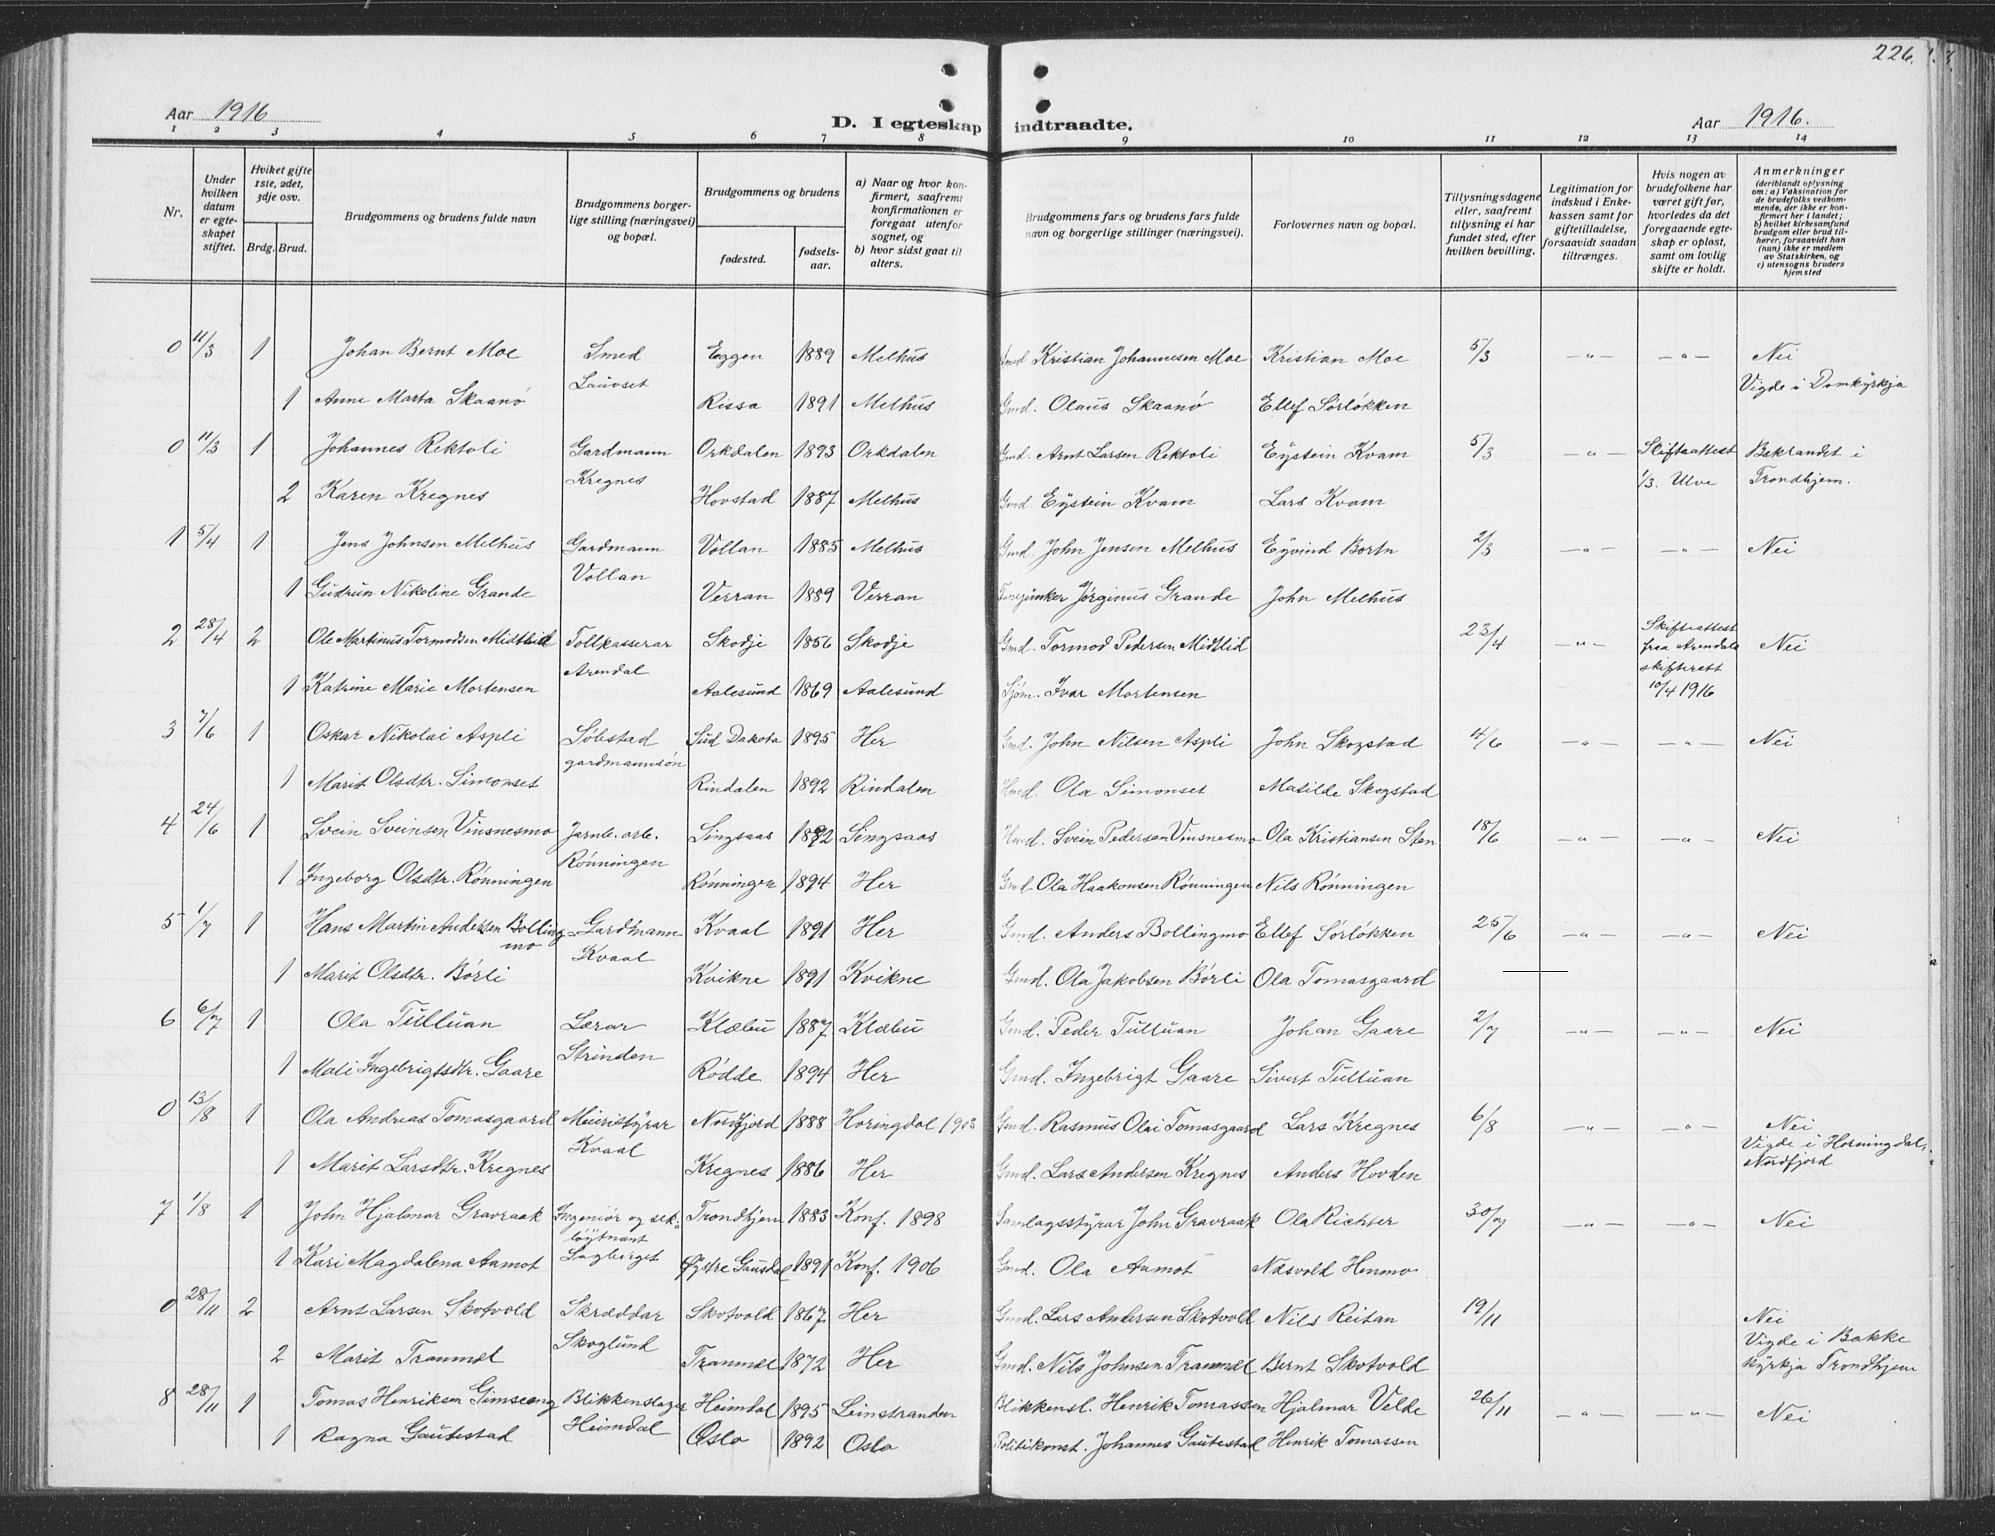 226.
Aar 1916 D. I egteskap indtraadte. Aar 1916.
1 2 3 4 5 6 7 8 9 10 11 12 13 14
Nr.
Under hvilken datum er egteskapet stiftet.
Hviket gifte 1ste, 2det, 3dje osv.
Brdg. Brud.
Brudgommens og brudens fulde navn
Brudgommens borgerlige stilling (næringsvei) og bopæl.
Brudgommens og brudens
fødested.
fødselsaar.
a) Naar og hvor konfirmert, saafremt konfirmationen er foregaat utenfor sognet, og
b) hvor sidst gaat til alters.
Brudgommens fars og brudens fars fulde navn og borgerlige stillinger (næringsvei).
Forlovernes navn og bopæl.
Tillysningsdagene eller, saafremt tillysning ei har fundet sted, efter hvilken bevilling.
Legitimation for indskud i Enkekassen samt for giftetilladelse, forsaavidt saadan tiltrænges.
Hvis nogen av brudefolkene har været gift før, hvorledes da det foregaaende egteskap er opløst, samt om lovlig skifte er holdt.
Anmerkninger (deriblandt oplysning om: a) Vaksination for de brudefolks vedkommende, der ikke er konfirmert her i landet; b) hvilket kirkesamfund brudgom eller brud tilhører, forsaavidt han (hun) ikke er medlem av Statskirken, og c) utensogns bruders hjemsted
0 11/3 1 Johan Bernt Moe Smed Eggen 1889 Melhus Smed Kristian Johannesen Moe Kristian Moe 5/3 — " — — " — Nei
Lauvset Vigde i Domkyrkja
1 Anne Marta Skaanø Rissa 1891 Melhus Gmd. Olaus Skaanø Ellef Sørløkken
0 11/3 1 Johannes Rektoli Gardmann Orkdalen 1893 Orkdalen Gmd. Arnt Larsen Rektoli Eystein Kvam 5/3 — " — Skifteattest Baklandet i
Kregnes 1/3. Ulve Trondhjem.
2 Karen Kregnes Hovstad 1887 Melhus Gmd. Eystein Kvam Lars Kvam
1 5/4 1 Jens Johnsen Melhus Gardmann Vollan 1885 Melhus Gmd. John Jensen Melhus Eyvind Bortn 2/3 — " — — " — Nei
Vollan
1 Gudrun Nikoline Grande Verran 1889 Verran Jørginus Grande John Melhus
2 28/4 2 Ole Martinus Tormodsen Midtlid Tollkasserar Skodje 1856 Skodje Gmd. Tormod Pedersen Midtlid 23/4 — " — Skifteattest fraa Arendals skifterett 10/4 1916 Nei
Arendal
1 Katrine Marie Mortensen Aalesund 1869 Aalesund Sjøm. Ivar Mortensen
3 7/6 1 Oskar Nikolai Aspli Søbstad Sud Dakota 1895 Her Gmd. John Nilsen Aspli John Skogstad 4/6 — " — — " — Nei
gardmannsøn
1 Marit Olsdtr. Simonset Rindalen 1892 Rindalen Hmd. Ola Simonset Matilde Skogstad
4 24/6 1 Svein Sveinsen Vinsnesmo Jarnb. arb. Singsaas 1892 Singsaas Hmd. Svein Pedersen Vinsnesmo Ola Kristiansen Sten 18/6 — " — — " — Nei
Rønningen
1 Ingeborg Olsdtr. Rønningen Rønningen 1894 Her Gmd. Ola Haakonsen Rønningen Nils Rønningen
5 1/7 1 Hans Martin Andersen Bollingmo Gardmann Kvaal 1891 Her Gmd. Anders Bollingmo Ellef Sørløkken 25/6 — " — — " — Nei
Kvaal
1 Marit Olsdtr. Børli Kvikne 1891 Kvikne Gmd. Ola Jakobsen Børli Ola Tomasgaard
6 6/7 1 Ola Tulluan Lærar Klæbu 1887 Klæbu Gmd. Peder Tulluan Johan Gaare 2/7 — " — — " — Nei
Strinden
1 Mali Ingebrigtsdtr. Gaare Rødde 1894 Her Gmd. Ingebrigt Gaare Sivert Tulluan
0 13/8 1 Ola Andreas Tomasgaard Meieristyrar Nordfjord 1888 Horingdal 1903 Gmd. Rasmus Olai Tomasgaard Lars Kregnes 6/8 — " — — " — Nei
Kvaal Vigde i Horningdal, Nordfjord
1 Marit Larsdtr. Kregnes Kregnes 1886 Her Gmd. Lars Andersen Kregnes Anders Hovden
7 1/8 1 John Hjalmar Gravraak Ingeniør og sekløytnant Trondhjem 1883 Konf. 1898 Samlagsstyrar John Gravraak Ola Richter 30/7 — " — — " — Nei
1 Kari Magdalena Aamot Øystre Gausdal 1891 Konf. 1906 Gmd. Ola Aamot Næsvold Henmo
0 28/11 2 Arnt Larsen Skotvold Skræddar Skotvold 1867 Her Gmd. Lars Andersen Skotvold Nils Reitan 19/11 Nei
Skoglund Vigde i Bakke
2 Marit Tranmæl Tranmæl 1872 Her Gmd. Nils Johnsen Tranmæl Bernt Skotvold kyrkja Trondhjem
8 28/11 1 Tomas Henriksen Gimseeng Blikkenslager Heimdal 1895 Leinstranden Blikkensl. Henrik Tomassen Hjalmar Velde 26/11 — " — — " — Nei
Heimdal
1 Ragna Gautestad Oslo 1892 Oslo Politikonst. Johannes Gautestad Henrik Tomassen